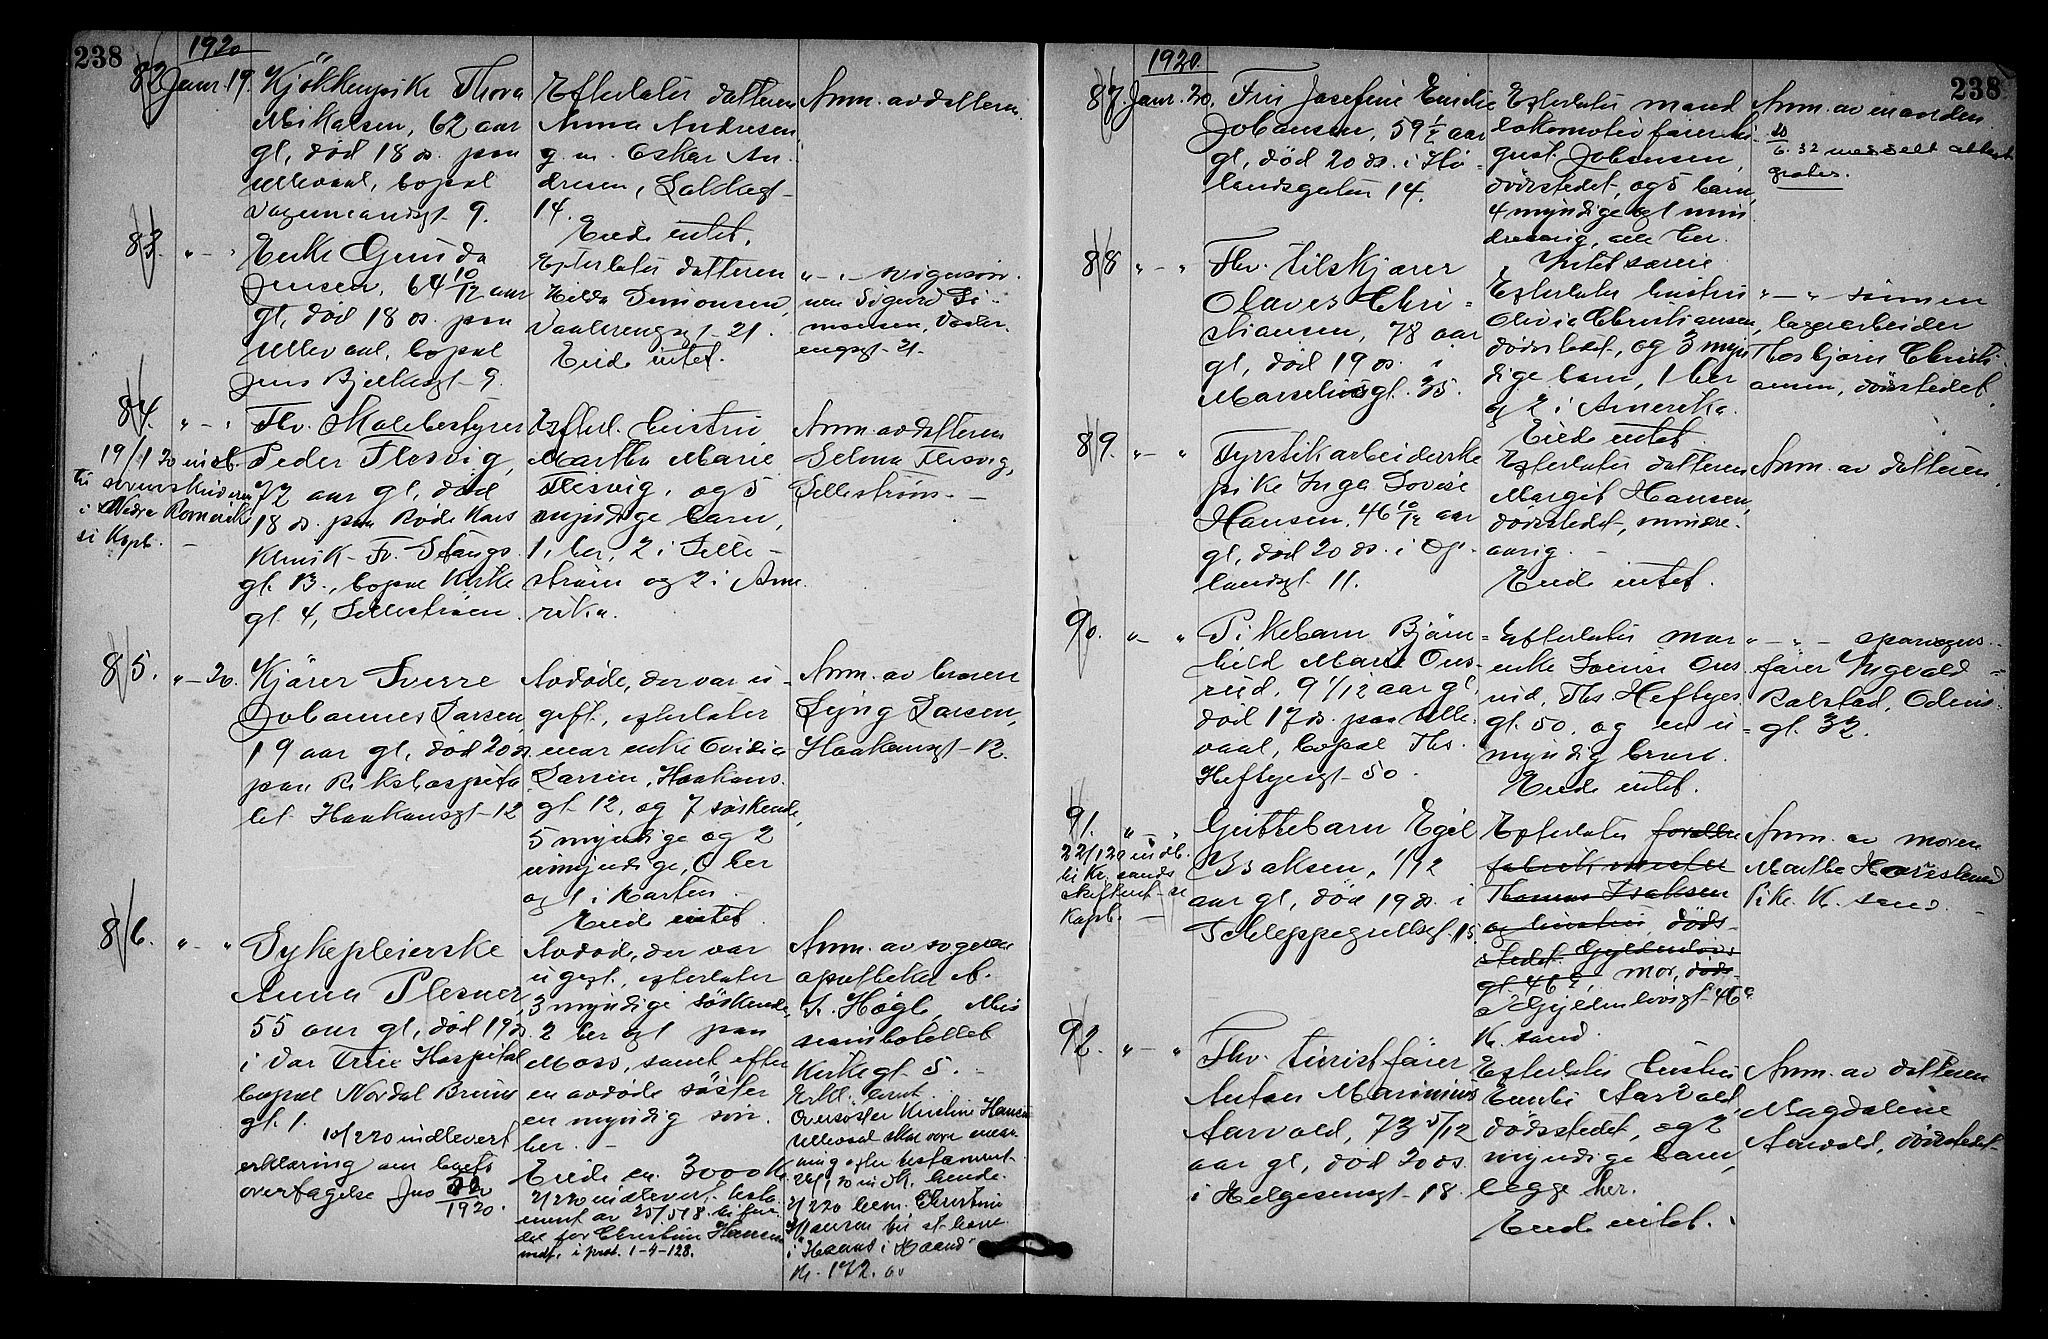 238
1920
82 Januar 19.
Kjökkenpike Thora
Mikalsen, 62 aar
gl, död 18 ds. paa
Ullevaal, bopæl
Vaguemandsgt 9.
Efterlater datteren
Anna Andresen
g. m. Oskar An-
dresen,
14.
Eiede intet.
Anm. av datteren.
83. " - "
Enke Gunda
Jensen, 64 10/12 aar
gl, död 18 ds. paa
Ullevaal, bopæl
Jens Bjelkesgt 9.
Efterlater datteren
Hilda Simonsen,
Vaalerenggt 21.
Eiede intet.
" - " - svigersön-
nen Sigurd Si-
monsen, Vaaler-
enggt. 21.
84. " - "
19/1 20 indb.
til sorenskriveren
i Nedre Romerike
si Kapt. -
Fhv. Skolebestyrer
Peder Flesvig,
72 aar gl, död
18 ds. paa Röde Kors
Klinik - Fr. Stangs
gt. 13., bopæl Kirke
gt. 4, Lilleström.
Efterl. hustru
Martha Marie
Flesvig, og 5
myndige barn,
1 her, 2 i Lille-
ström og 2 i Ame
rika.
Anm. av datteren
Selma Flesvig,
Lillestrøm. -
85. " - 20.
Kjörer Sverre
Johannes Larsen,
19 aar gl, död 20 ds
paa Rikshospita
let Haakonsgt 12
Avdöde, der var u-
gift, efterlater
mor enke Ovidia
Larsen, Haakons
gt 12, og 7 söskende,
5 myndige og 2
umyndige, 6 her
og 1 i Horten.
Eiede intet.
Anm. av broren
Lyng Larsen,
Haakonsgt 12.
86. " - "
Sykepleierske
Anna Plesner,
55 aar gl, död 19 ds
i Vor Frue Hospital
bopæl Nordal Bruns
gt. 1.
10/2 20 indlevert
erklæring om boets
overtagelse Jno
1920.
Avdöde, der var
ugift, efterlater
3 myndige söskende,
2 her og 1 paa
Moss, samt efter
en avdöde söster
en myndig sön
her. -
Eiede ca. 3000 Kr
2/2 20 indlevert testa-
ment av 25/5 18 til for-
del for Christine Hansen
indf. i prot. 1-4-128.
Anm. av svogeren
apotheker
S. Høgh, Mis
sionshotellet
Kirkegt 5. -
Erkl.
Oversöster Kristine Hansen
Ullevaal skal være
arving efter testament.
2/2 20 bem. Christine
Hansen til at
i "Haand i Haand"
Kr. 172.
238
1920.
87. Januar. 20.
Fru Josefine Emilie
Johansen, 59 1/2 aar
gl, död 20 ds. i Hö-
landsgaten 14.
Efterlater mand
lokomotivförer Au-
gust Johansen,
dödsstedet, og 5 barn,
4 myndige og 1 min
dreaarig, alle her.
Intet særeie
Anm. av manden.
20
6. 32 meddelt attest
gratis.
88 " - "
Fhv. tilskjærer
Olaves Chri-
stiansen, 78 aar
gl, död 19 ds. i
Marselisgt. 35.
Efterlater hustru
Olivia Christiansen,
dödsstedet, og 3 myn
dige barn, 1 her
og 2 i Amerika.
Eiede intet.
" - " - sönnen
byggearbeider
Thorbjörn Christi-
ansen, dödsstedet.
89. " - "
Fyrstikarbeiderske
pike Inga Lovise
Hansen, 46 10/12 aar
gl, död 20 ds. i Op-
landsgt. 11.
Efterlater datteren
Margit Hansen,
dödsstedet, mindre-
aarig. -
Eiede intet.
Anm. av datteren.
90. " - "
Pikebarn Björn-
hild Marie Ous-
rud, 9 1/12 aar gl,
död 17 ds. paa Ulle-
vaal, bopæl Ths.
Heftyesgt 50.
Efterlater mor
enke Lovise Ous
rud, Ths. Heftyes
gt. 50, og en u-
myndig bror.
Eiede intet.
" - " - sporvogns-
förer Ingvald
Ralstad, Odins
gt. 32.
91. " - "
22/1 20 indb.
til Kr. sands
skifteret si
Kapt. -
Guttebarn Egil
Isaksen, 1/12
aar gl, död 19 ds. i
Schleppegrellsgt. 15.
Efterlater foreldre
fabrikmester
Thomas Isaksen
og hustru, döds-
stedet Gyldenlöves
gt. 46 a, mor, döds-
Gyldenlövsgt 46 a
Kr. sand.
Anm. av moren
Marthe
Pike. Kr. sand. -
92. " - "
Fhv. turistförer
Anton Marinius
Aarvold, 73 5/12
aar gl, död 20 ds.
i Helgesensgt 18.
Efterlater hustru
Emilie Aarvold,
dödsstedet, og 2
myndige barn,
begge her.
Eiede intet.
Anm. av datteren
Magdalene
Aarvold, dödsstedet.